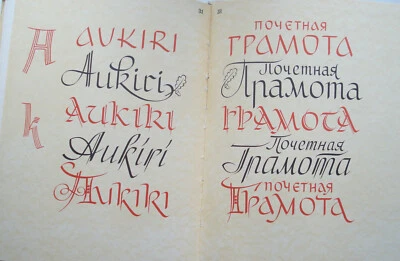 A
AUKIRI
Aukiri
AUKIRI
k
Aukiri
AUKIRI
ПОЧЕТНАЯ
ГРАМОТА
Почетная
Грамота
ГРАМОТА
Почетная
Грамота
ПОЧЕТНАЯ
ГРАМОТА